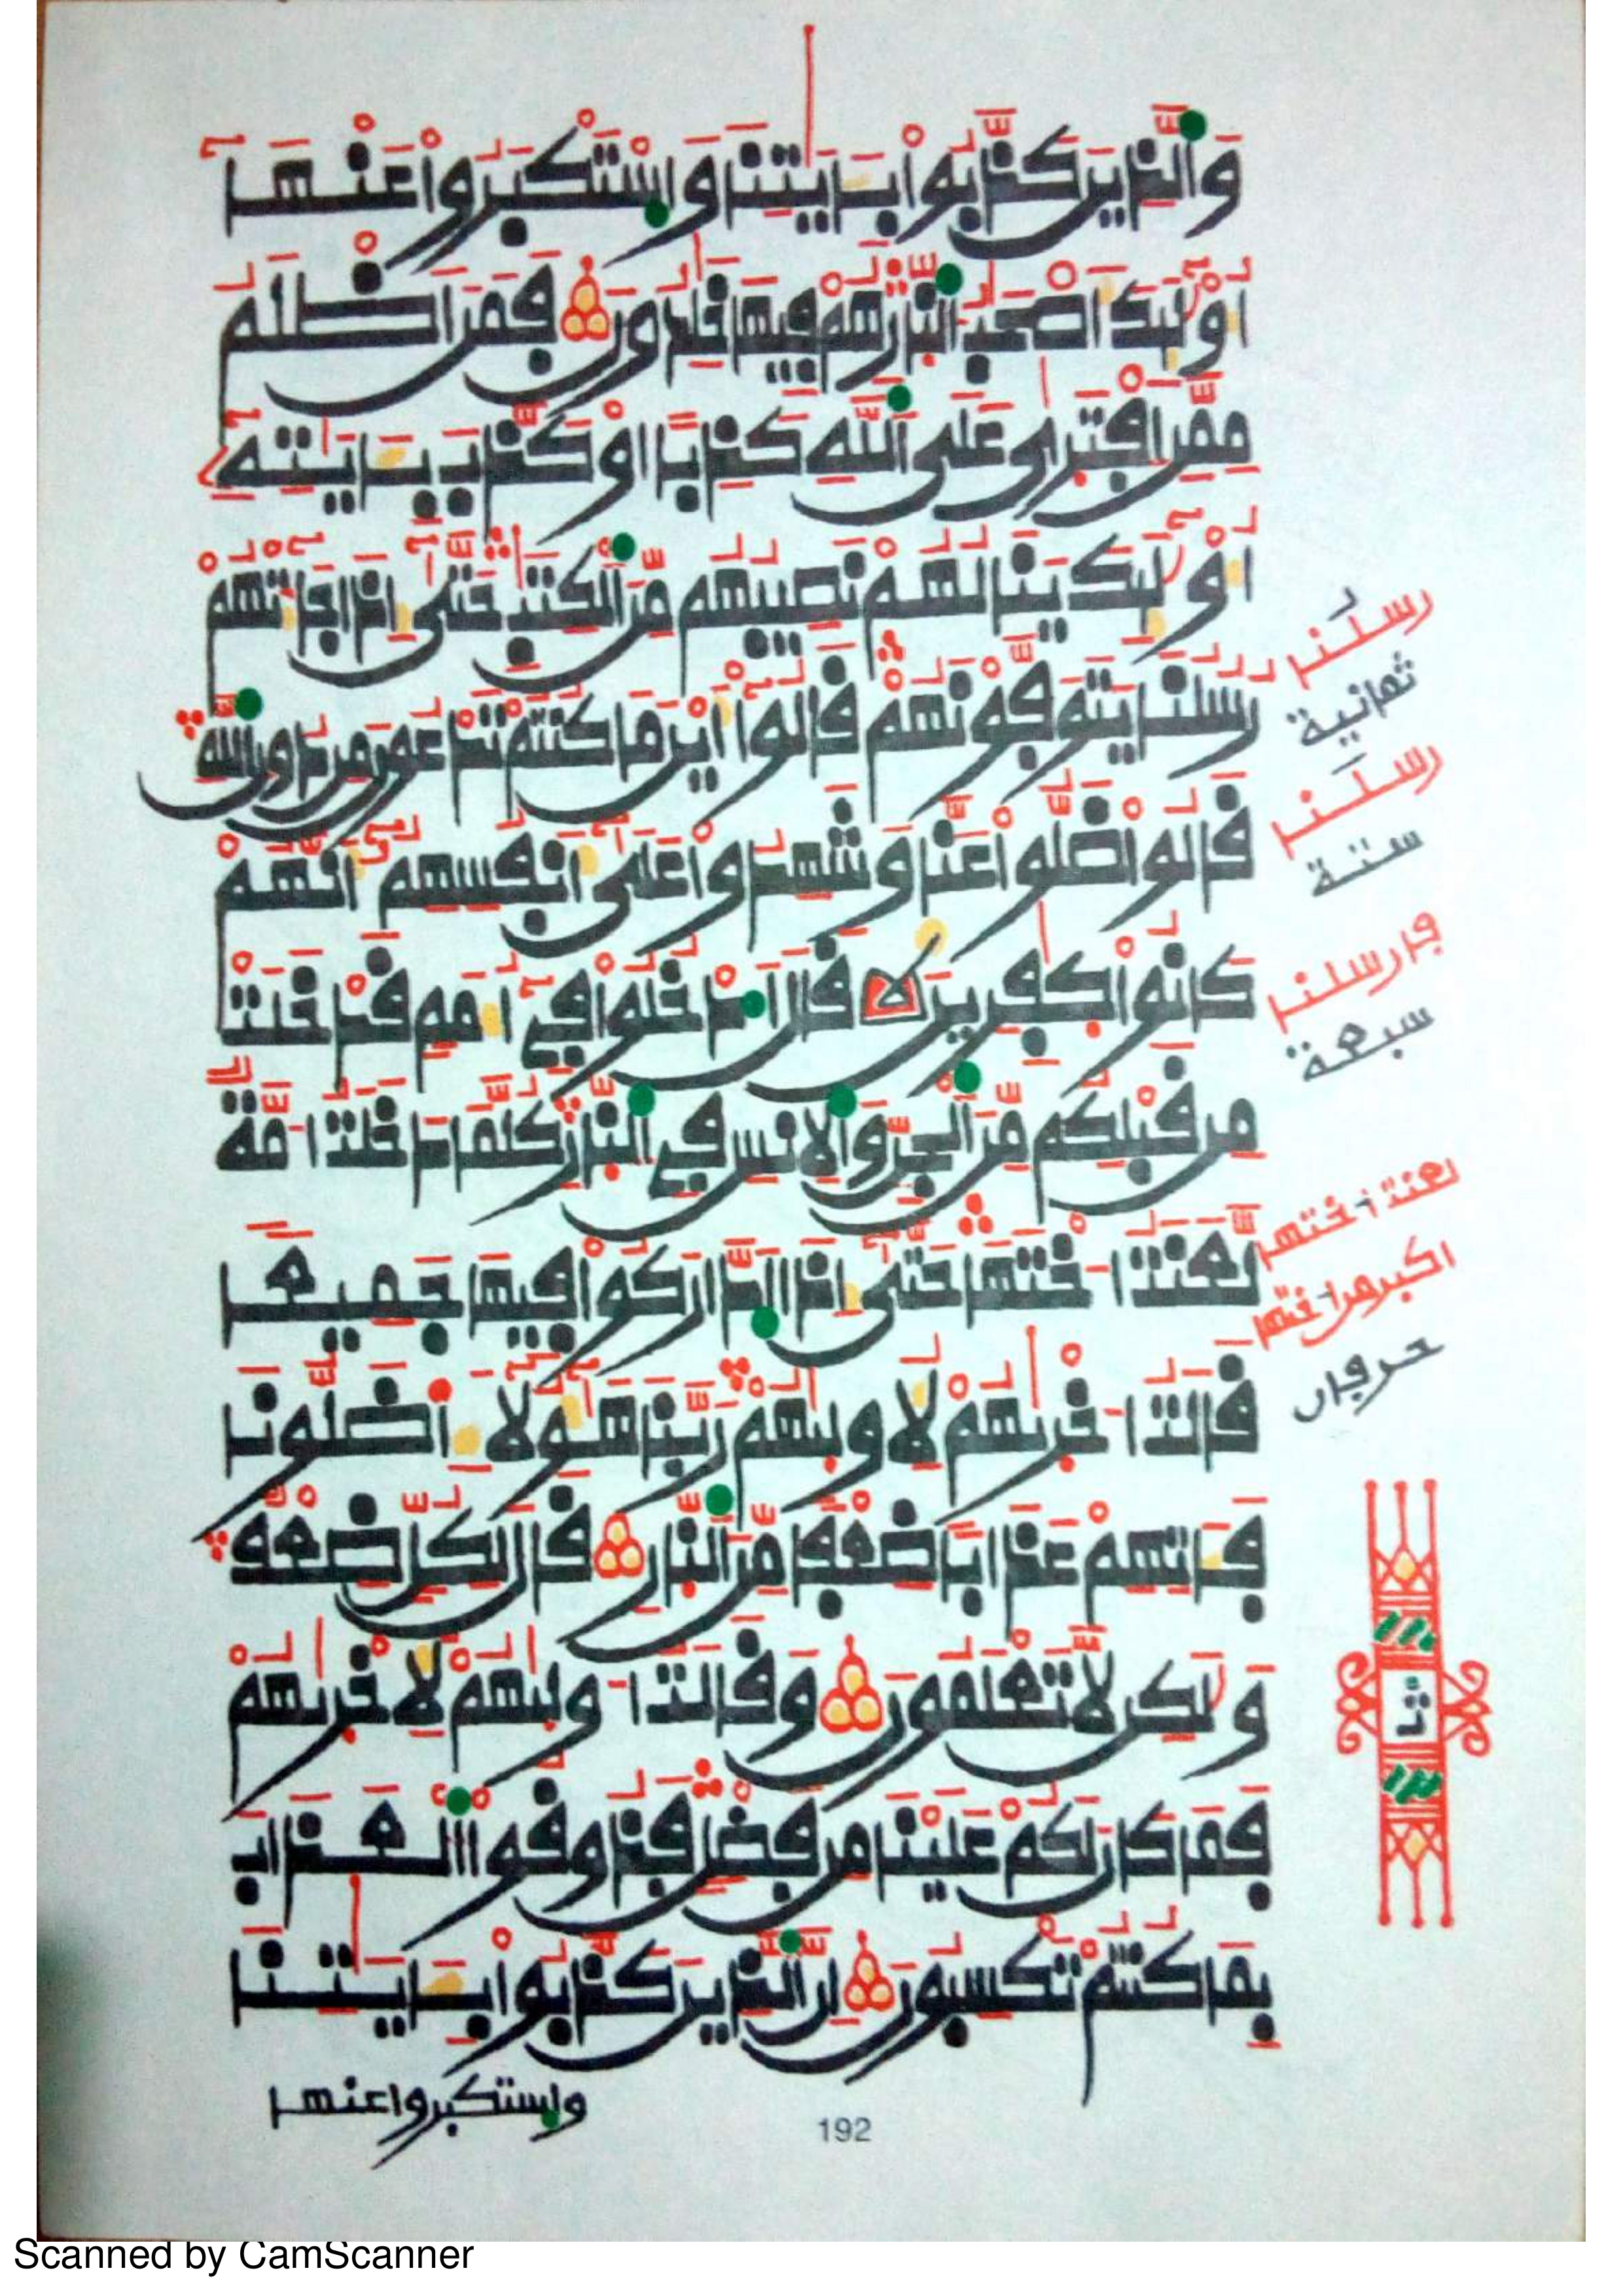 وَالَّذِينَ كَذَّبُوا بِـَٔايَٰتِنَا وَاسْتَكْبَرُوا عَنْهَآ
أُوْلَٰٓئِكَ أَصْحَٰبُ النَّارِ هُمْ فِيهَا خَٰلِدُونَ فَمَنَ اَظْلَمُ
مِمَّنِ اِفْتَرَىٰ عَلَى اللَّهِ كَذِبًا أَوْ كَذَّبَ بِـَٔايَٰتِهِۦٓ
أُوْلَٰٓئِكَ يَنَالُهُمْ نَصِيبُهُم مِّنَ الْكِتَٰبِ حَتَّىٰٓ إِذَا جَآءَتْهُمْ
رُسُلُنَا يَتَوَفَّوْنَهُمْ قَالُوٓا أَيْنَ مَا كُنتُمْ تَدْعُونَ مِن دُونِ اللَّهِ
قَالُوا ضَلُّوا عَنَّا وَشَهِدُوا عَلَىٰٓ أَنفُسِهِمُۥٓ أَنَّهُمْ
كَانُوا كَٰفِرِينَ قَالَ ادْخُلُوا فِےٓ أُمَمٍ قَدْ خَلَتْ
مِن قَبْلِكُم مِّنَ الْجِنِّ وَالِانسِ فِے النَّارِ كُلَّمَا دَخَلَتُ امَّةٌ
لَّعَنَتُ اخْتَهَا حَتَّىٰٓ إِذَا ادَّارَكُوا فِيهَا جَمِيعًا
قَالَتُ اخْرَىٰهُمْ لِأُولَىٰهُمْ رَبَّنَا هَٰٓؤُلَآءِ اَضَلُّونَا
فَـَٔاتِهِمْ عَذَابًا ضِعْفًا مِّنَ النَّارِ قَالَ لِكُلٍّ ضِعْفٌ
وَلَٰكِن لَّا تَعْلَمُونَ وَقَالَتُ اولَىٰهُمْ لِأُخْرَىٰهُمْ
فَمَا كَانَ لَكُمْ عَلَيْنَا مِن فَضْلٍ فَذُوقُوا الْعَذَابَ
بِمَا كُنتُمْ تَكْسِبُونَ إِنَّ الَّذِينَ كَذَّبُوا بِـَٔايَٰتِنَا
واستكبروا عنها
192
رسلُنا
ثمانية
رسلَنا
ستة
سبعة
لعنت اختها
حرفان
Scanned by CamScanner